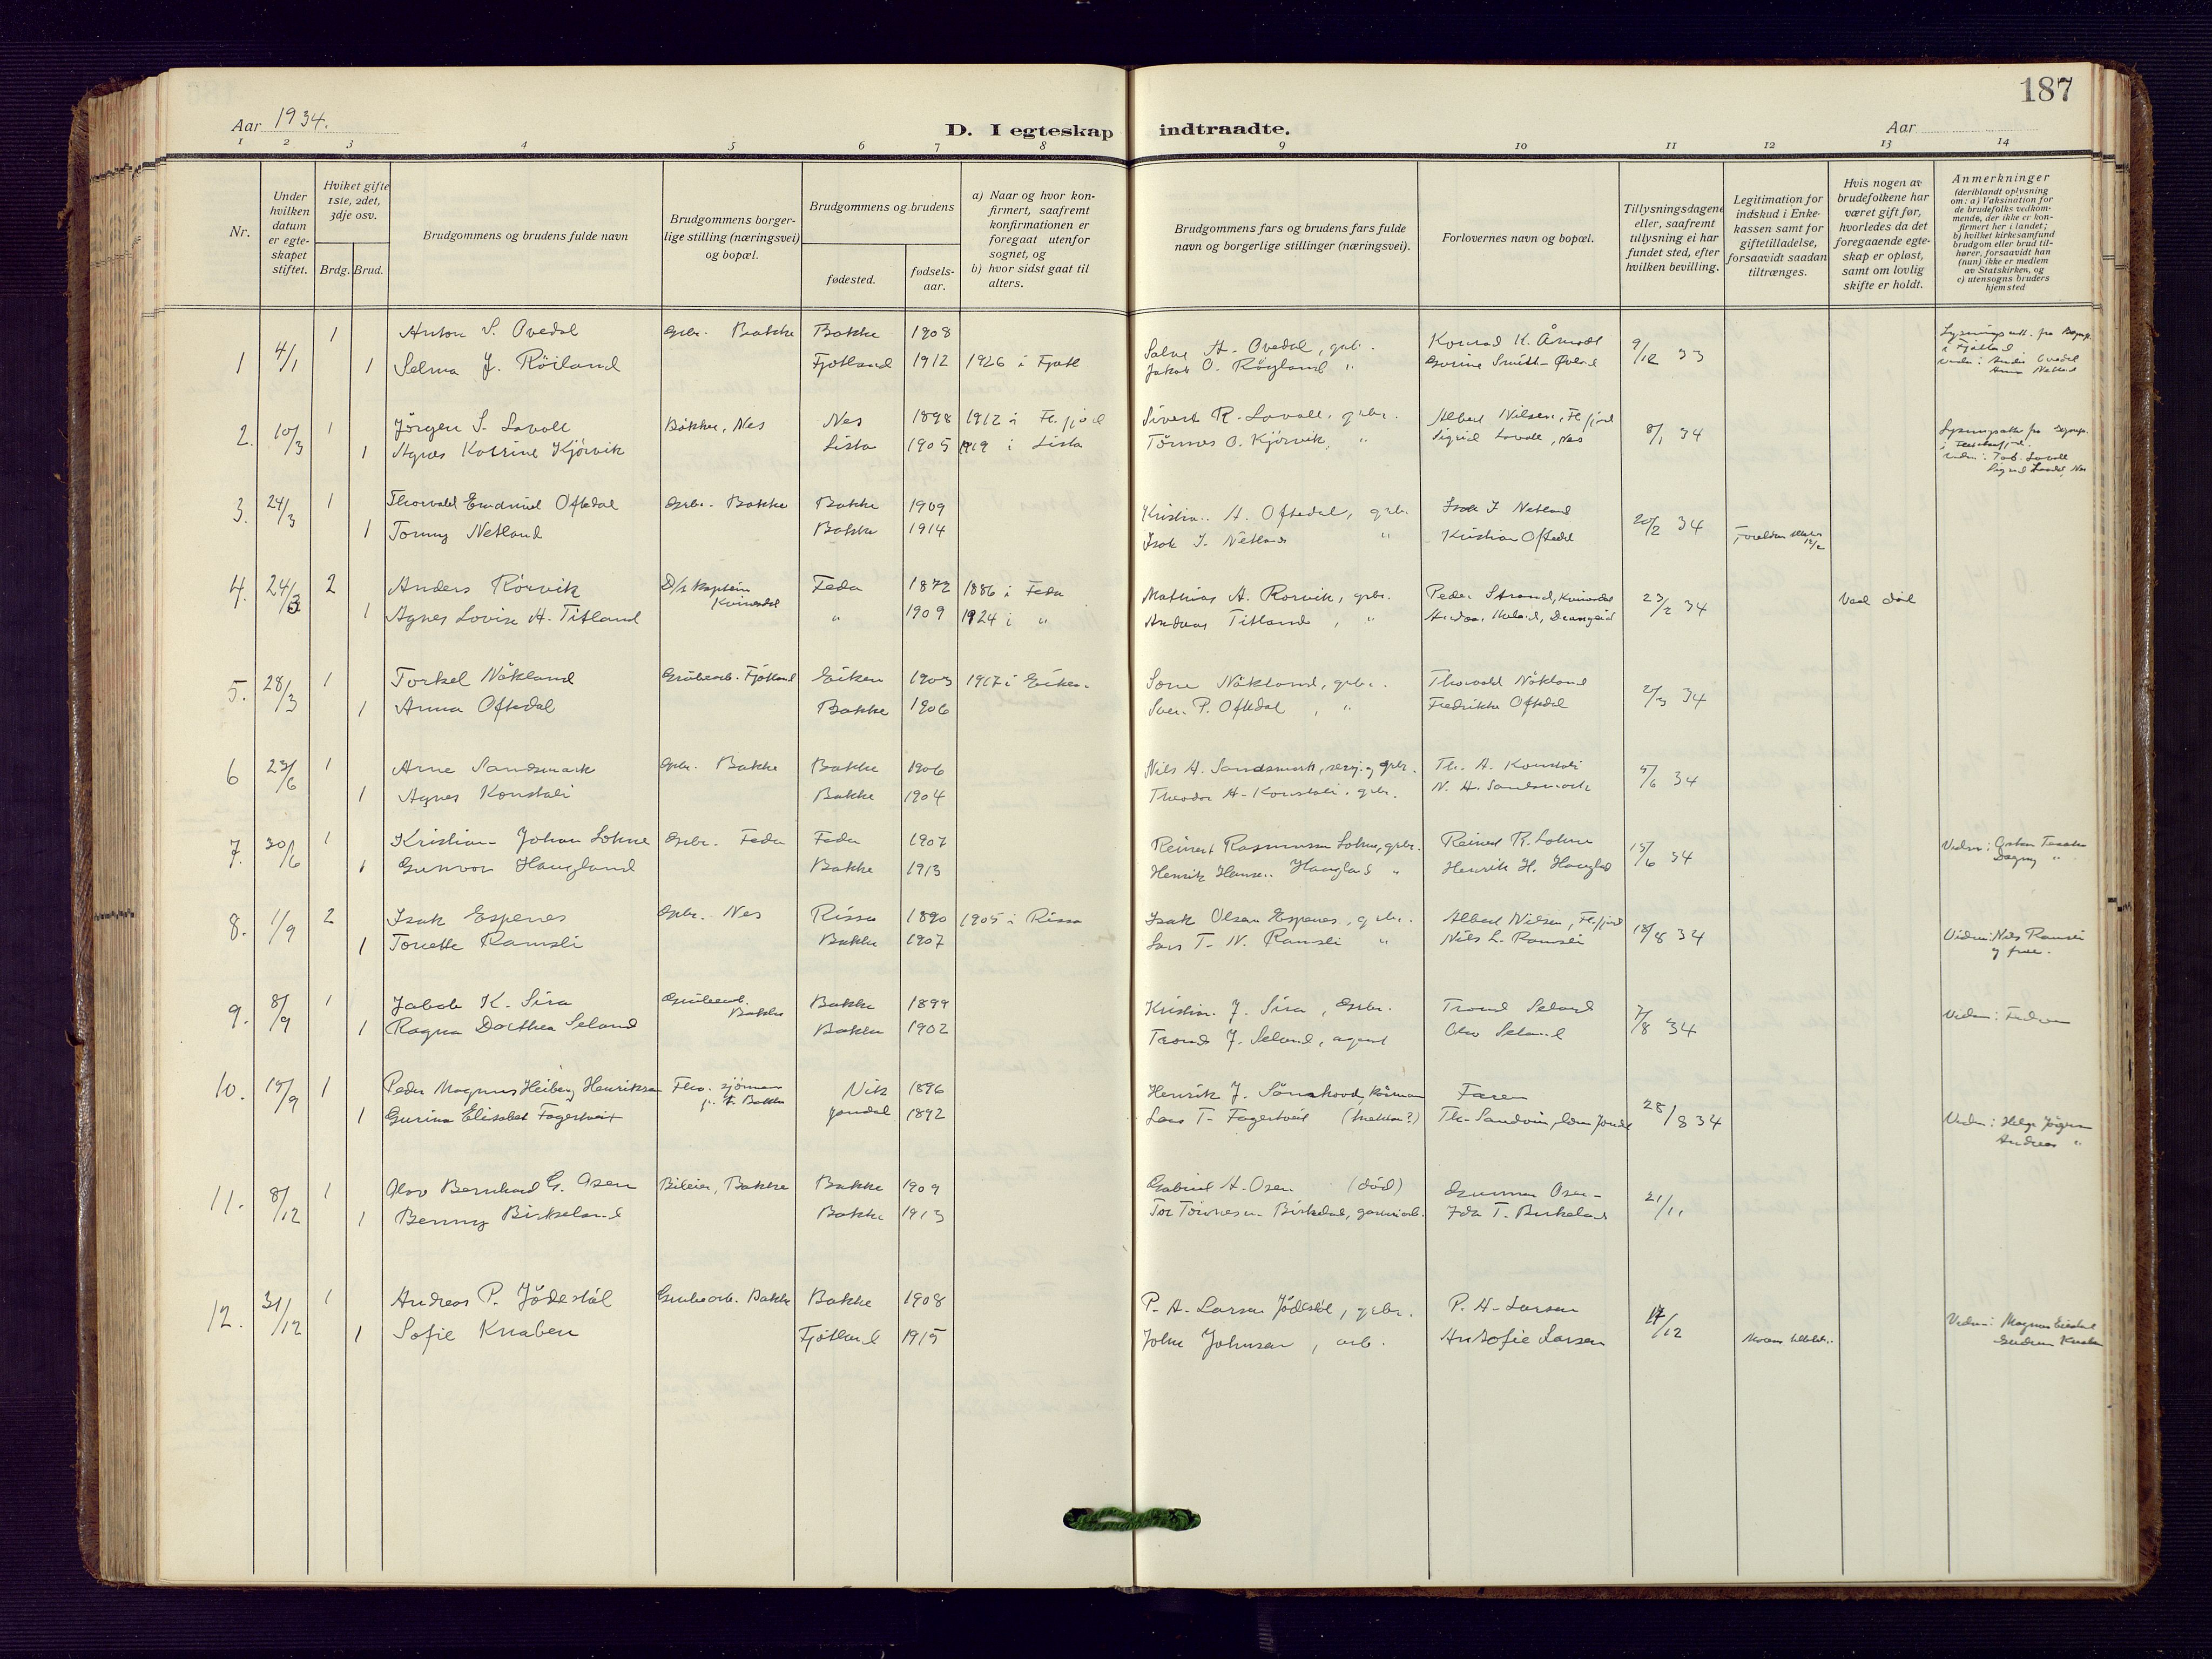 187
Aar 1934.
D. I egteskap indtraadte.
Aar
1 2 3 4 5 6 7 8 9 10 11 12 13 14
Nr.
Under hvilken datum er egteskapet stiftet.
Hvilket gifte 1ste, 2det, 3dje osv.
Brdg. Brud.
Brudgommens og brudens fulde navn
Brudgommens borgerlige stilling (næringsvei) og bopæl.
Brudgommens og brudens
fødested.
fødselsaar.
a) Naar og hvor konfirmert, saafremt konfirmationen er foregaat utenfor sognet, og
b) hvor sidst gaat til alters.
Brudgommens fars og brudens fars fulde navn og borgerlige stillinger (næringsvei).
Forlovernes navn og bopæl.
Tillysningsdagene eller, saafremt tillysning ei har fundet sted, efter hvilken bevilling.
Legitimation for indskud i Enkekassen samt for giftetilladelse, forsaavidt saadan tiltrænges.
Hvis nogen av brudefolkene har været gift før, hvorledes da det foregaaende egteskap er opløst, samt om lovlig skifte er holdt.
Anmerkninger
(deriblandt oplysning om: a) Vaksination for de brudefolks vedkommende, der ikke er konfirmert her i landet;
b) hvilket kirkesamfund brudgom eller brud tilhører, forsaavidt han (hun) ikke er medlem av Statskirken, og
c) utensogns bruders hjemsted
1 4/1 1 Anton S. Ovedal Gbr. Bakke Bakke 1908 Salve A. Ovedal, gbr. Konrad K. Åmodt 9/12 33
1 Selma J. Röiland Fjotland 1912 1926 i Fjotl Jakob O. Röyland " Gurine Smith-Øvland
2. 10/3 1 Jörgen S. Lavoll Bakke, Nes Nes 1898 1912 i Fl.fjord Sivert R. Lavoll, gbr. Albert Nilsen, Fl.fjord 8/1 34
1 Agnes Katrine Kjörvik Lista 1905 1919 i Lista Tönnes O. Kjörvik, " Sigrid Lavoll, Nes
3. 24/3 1 Thorvald Emanuel Oftedal Gbr. Bakke Bakke 1909 Kristian A. Oftedal, gbr. Isak I Netland 20/2 34
1 Tonny Netland Bakke 1914 Isak I. Netland " Kristian Oftedal
4. 24/3 2 Anders Rörvik D/s kaptein Kvinesdal Feda 1872 1886 i Feda Mathias A. Rörvik, gbr. Peder Strand, Kvinesdal 23/2 34 Ved död
1 Agnes Lovise A. Titland " 1909 1924 i " Andreas Titland, "
5. 28/3 1 Torkel Nökland Grubearb. Fjotland Eiken 1903 1917 i Eiken. Sone Nökland, gbr. Thorvald Nökland 2/3 34
1 Anna Oftedal Bakke 1906 Sven P. Oftedal, " Fredrikke Oftedal
6 23/6 1 Arne Sandsmark Gbr. Bakke Bakke 1906 Nils H. Sandsmark, gbr. Th. A. Konstali 5/6 34
1 Agnes Konstali Bakke 1904 Theodor A. Konstali, gbr. N. H. Sandsmark
7. 30/6 1 Kristian Johan Lohne Gbr. Feda Feda 1907 Reinert Rasmussen Lohne, gbr. Reinert R. Lohne 15/6 34
1 Gunvor Haugland Bakke 1913 Henrik Hansen Haugland " Henrik H. Haugland
8. 1/9 2 Isak Espenes Gbr. Nes Rissa 1890 1905 i Rissa Isak Olsen Espenes, gbr. Albert Nilsen, Fl.fjord 18/8 34
1 Tonette Ramsli Bakke 1907 Lars T. N. Ramsli " Nils L. Ramsli Vidner: Nils Ramsli
og frue.
9. 8/9 1 Jakob K. Sira Grubearb. Bakke Bakke 1899 Kristian J. Sira, Gbr. Trond Seland 7/8 34
1 Ragna Dorthea Seland Bakke 1902 Trond J. Seland, agent Olav Seland
10. 15/9 1 Peder Magnus Heiberg Henriksen sjömann Bakke Vik 1896 Henrik J. Sönstvoed Faren 28/8 34
1 Gurina Elisabet Fagertveit Jondal 1892 Lars T. Fagertveit Th. Sandvin
Andreas "
11. 8/12 1 Olav Bernhard G. Osen Bileier, Bakke Bakke 1909 Gabriel A. Osen (död) Gunnar Osen 21/11
1 Benny Birkeland Bakke 1913 Tor Tönnesen Birkeland Ida T. Birkeland
12. 31/12 1 Andreas P. Jödestöl Grubearb. Bakke Bakke 1908 P. A. Larsen Jödestöl, gbr. P. A. Larsen 14/12
1 Sofie Knaben Fjotland 1915 John Johnsen, arb. An Sofie Larsen